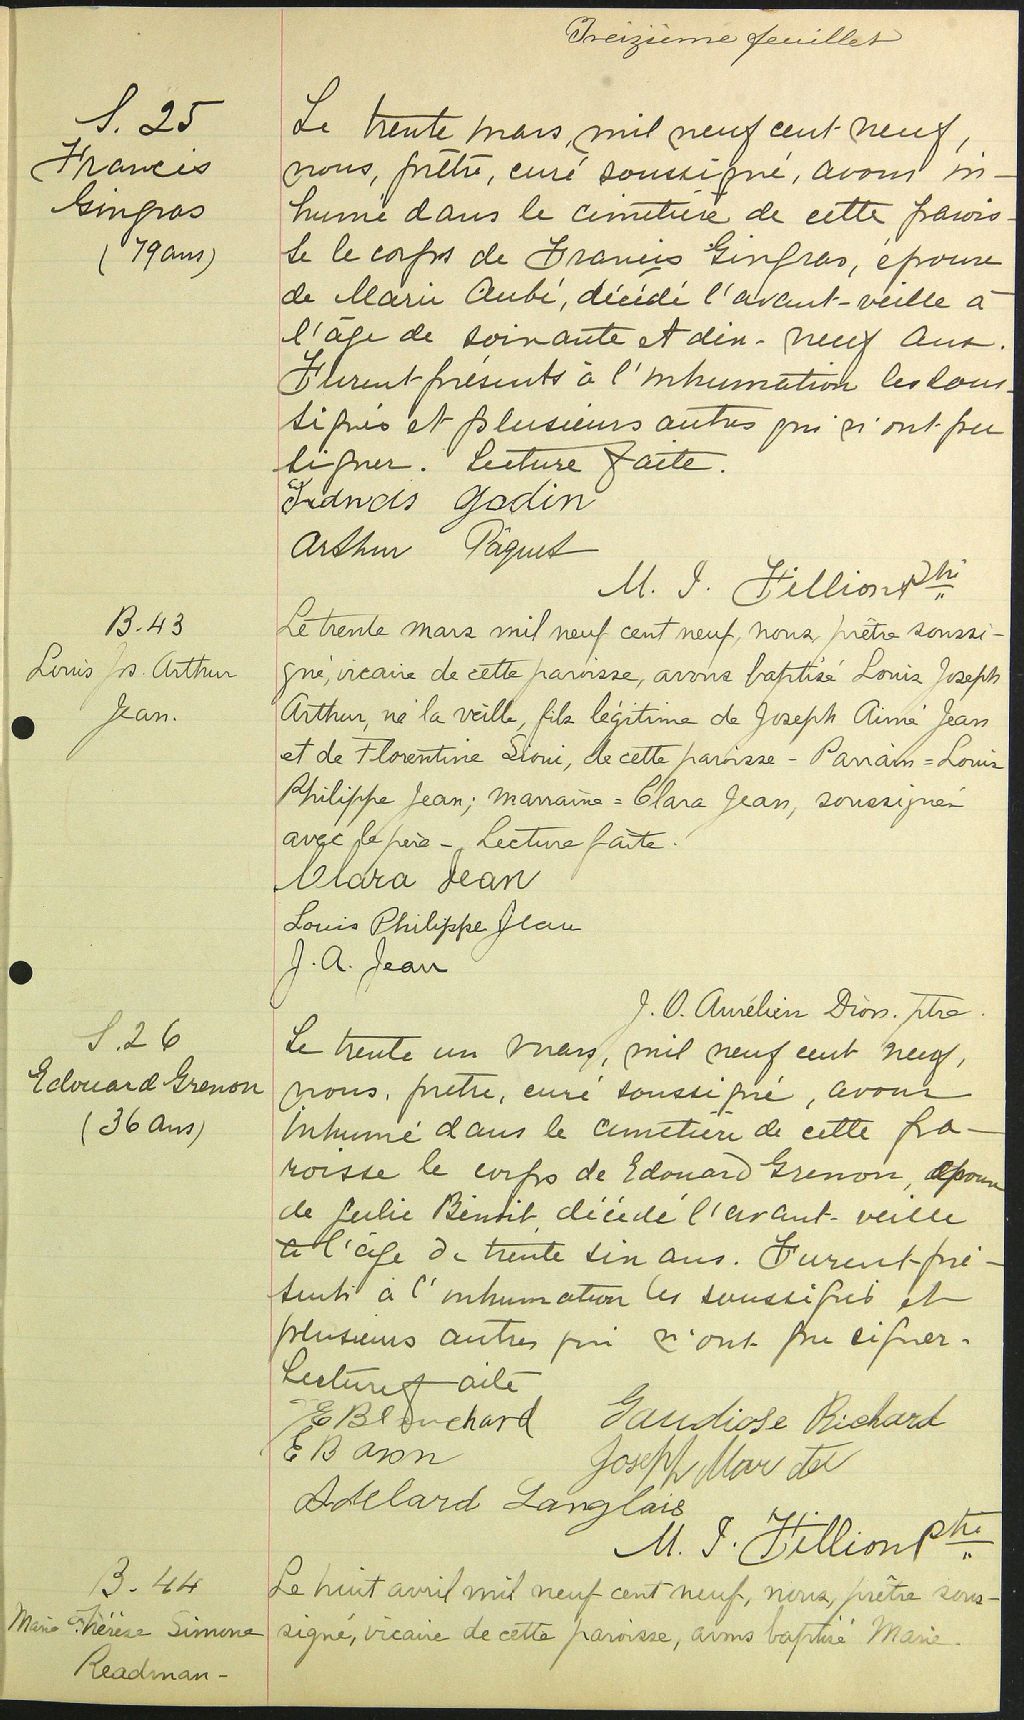 Treizième feuillet
S. 25
Francis
Gingras
(79 ans)
Le trente mars, mil neuf cent neuf,
nous, prêtre, curé soussigné, avons in-
humé dans le cimetière de cette parois-
se le corps de Francis Gingras, époux
de Marie Aubé, décédé l'avant-veille à
l'âge de soixante et dix-neuf ans.
Furent présents à l'inhumation les sous-
signés et plusieurs autres qui n'ont pu
signer. Lecture faite.
Francis Godin
Arthur Paquet
M. I. Fillion Ptre
B. 43
Louis Jos. Arthur
Jean.
Le trente mars mil neuf cent neuf, nous, prêtre soussi-
gné, vicaire de cette paroisse, avons baptisé Louis Joseph
Arthur, né la veille, fils légitime de Joseph Aimé Jean
et de Florentine Sioui, de cette paroisse - Parrain = Louis
Philippe Jean; marraine = Clara Jean, soussignés
avec le père - Lecture faite.
Clara Jean
Louis Philippe Jean
J. A. Jean
J. O. Aurélien Dion. ptre.
S. 26
Edouard Grenon
(36 ans)
Le trente un mars, mil neuf cent neuf,
nous, prêtre, curé soussigné, avons
inhumé dans le cimetière de cette pa-
roisse le corps de Edouard Grenon, époux
de Julie Benoit, décédé l'avant-veille
à l'âge de trente six ans. Furent pré-
sents à l'inhumation les soussignés et
plusieurs autres qui n'ont pu signer.
Lecture faite
E Blanchard Gaudiose Richard
E Baron Joseph
Adelard Langlais
M. I. Fillion Ptre
B. 44
Marie Thérèse Simone
Readman -
Le huit avril mil neuf cent neuf, nous, prêtre sous-
signé, vicaire de cette paroisse, avons baptisé Marie